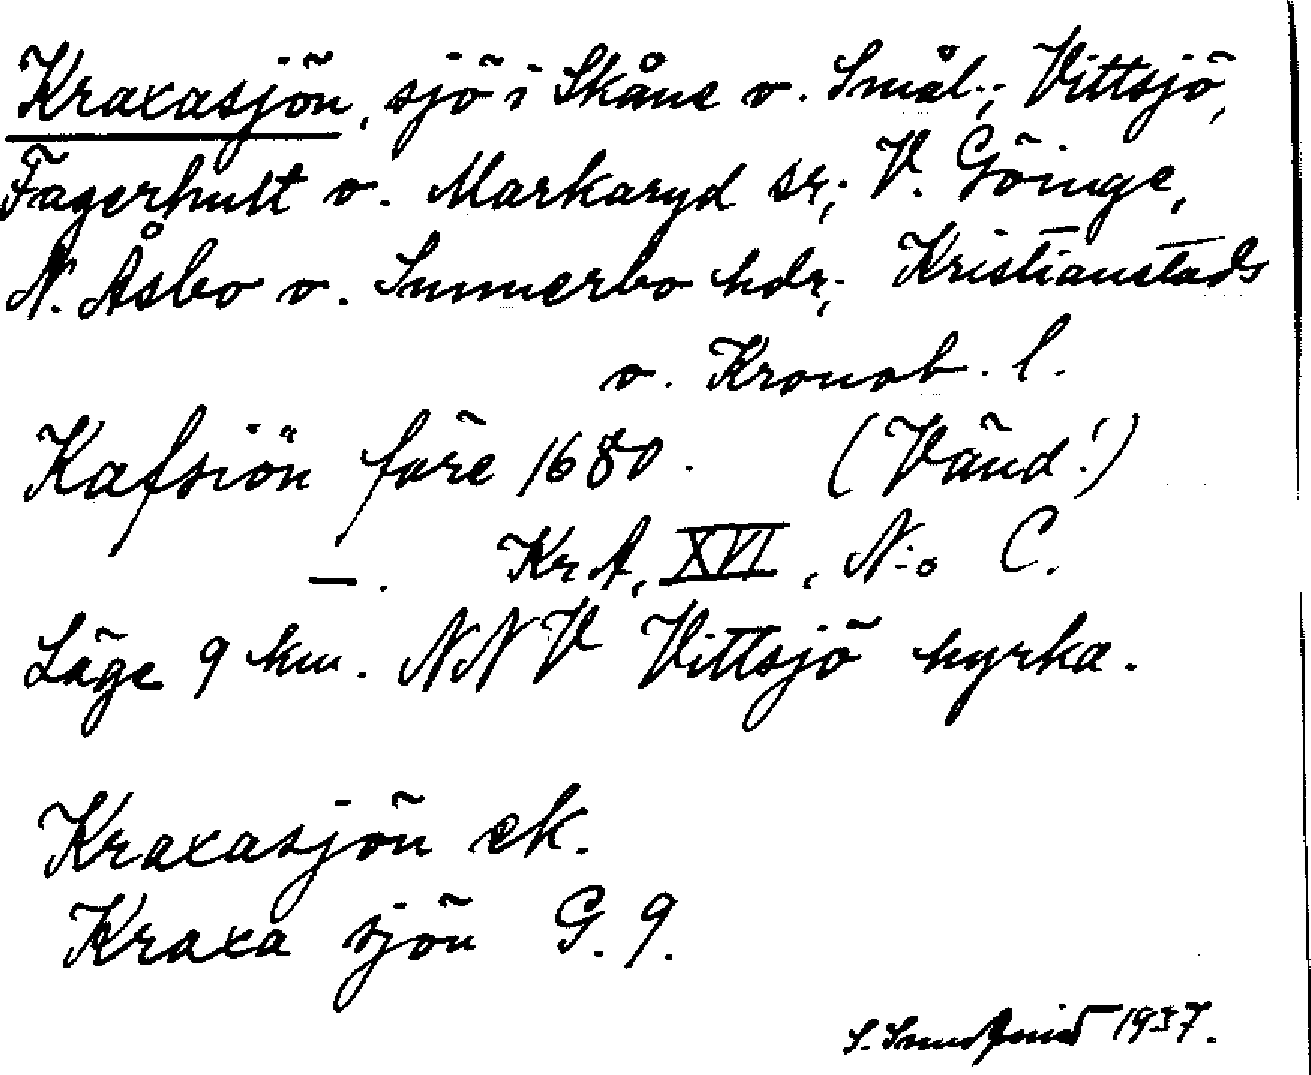 Kraxasjön, sjö i Skåne o. Smål.; Vittsjö,
Fagerhult o. Markaryd sr; V. Göinge,
N. Åsbo o. Sunnerbo hdr; Kristianstads
o. Kronob. l.
Kafsiön före 1680. (Vänd!)
—. KrA, XVI, N:o C.
Läge 9 km. NNV Vittsjö kyrka.
Kraxasjön ek.
Kraxa sjön G. 9.
S. 1937.